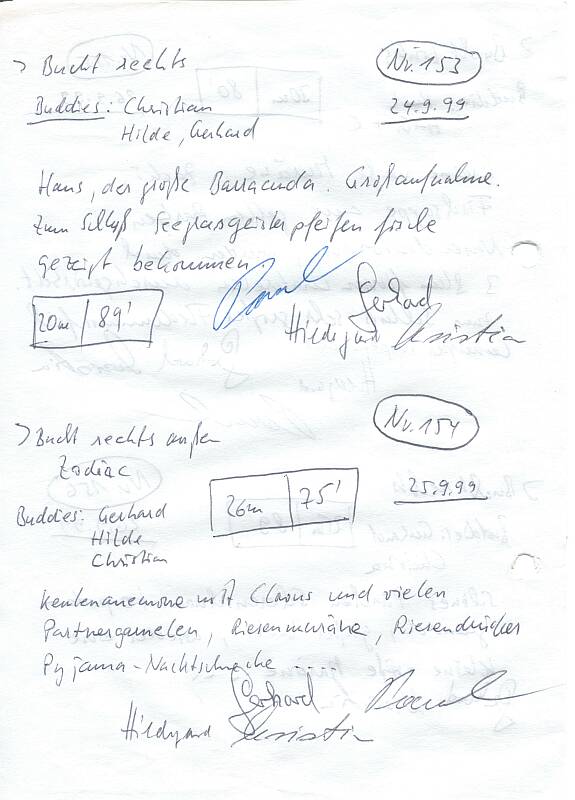 > Bucht rechts
Nr. 153
Buddies: Christian
24.9.99
Hilde, Gerhard
Hans, der große Barracuda. Großaufnahme.
Zum Schluß Seegrasgeisterpfeifenfische
gezeigt bekommen
20m | 89'
Gerhard
Hildegard Christian
Nr. 154
> Bucht rechts außen
Zodiac
26m | 75'
25.9.99
Buddies: Gerhard
Hilde
Christian
Keulenanemone mit Clowns und vielen
Partnergarnelen, Riesenmuräne, Riesendrücker
Pyjama-Nachtschnecke ....
Gerhard
Hildegard Christian